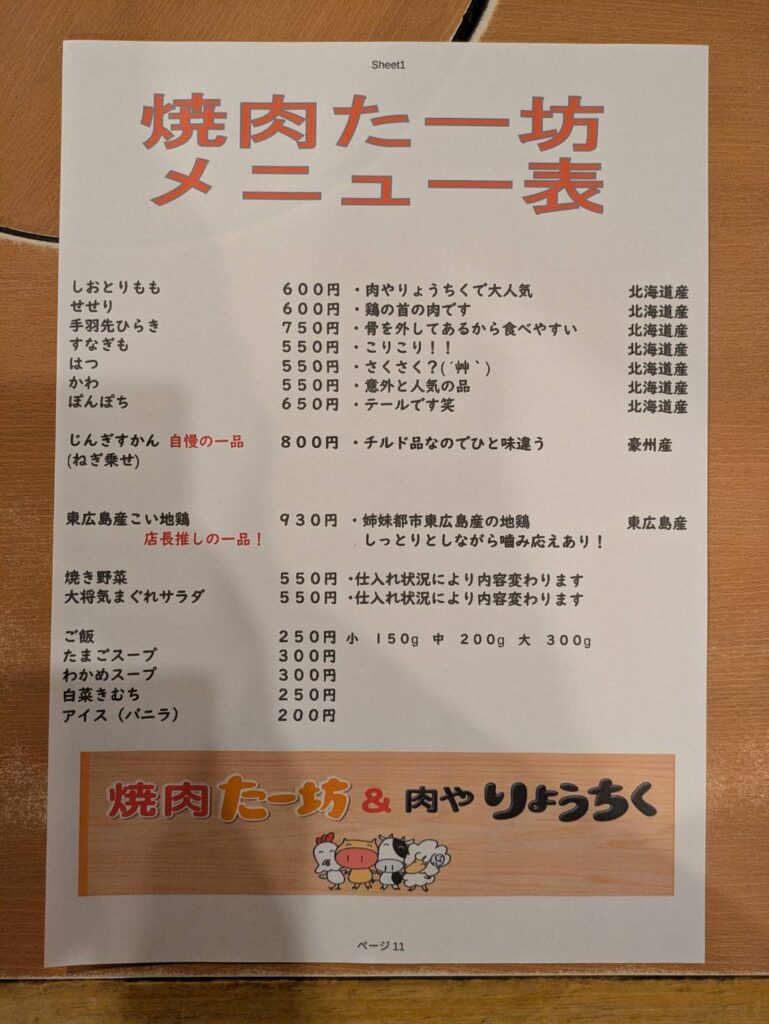 Sheet1
焼肉たー坊
メニュー表
しおとりもも 600円 ・肉やりょうちくで大人気 北海道産
せせり 600円 ・鶏の首の肉です 北海道産
手羽先ひらき 750円 ・骨を外してあるから食べやすい 北海道産
すなぎも 550円 ・こりこり！！ 北海道産
はつ 550円 ・さくさく？(´艸｀) 北海道産
かわ 550円 ・意外と人気の品 北海道産
ぽんぽち 650円 ・テールです笑 北海道産
じんぎすかん 自慢の一品 800円 ・チルド品なのでひと味違う 豪州産
(ねぎ乗せ)
東広島産こい地鶏 930円 ・姉妹都市東広島産の地鶏 東広島産
店長推しの一品！ しっとりとしながら噛み応えあり！
焼き野菜 550円 ・仕入れ状況により内容変わります
大将気まぐれサラダ 550円 ・仕入れ状況により内容変わります
ご飯 250円 小 150g 中 200g 大 300g
たまごスープ 300円
わかめスープ 300円
白菜きむち 250円
アイス（バニラ） 200円
焼肉たー坊 & 肉やりょうちく
ページ 11